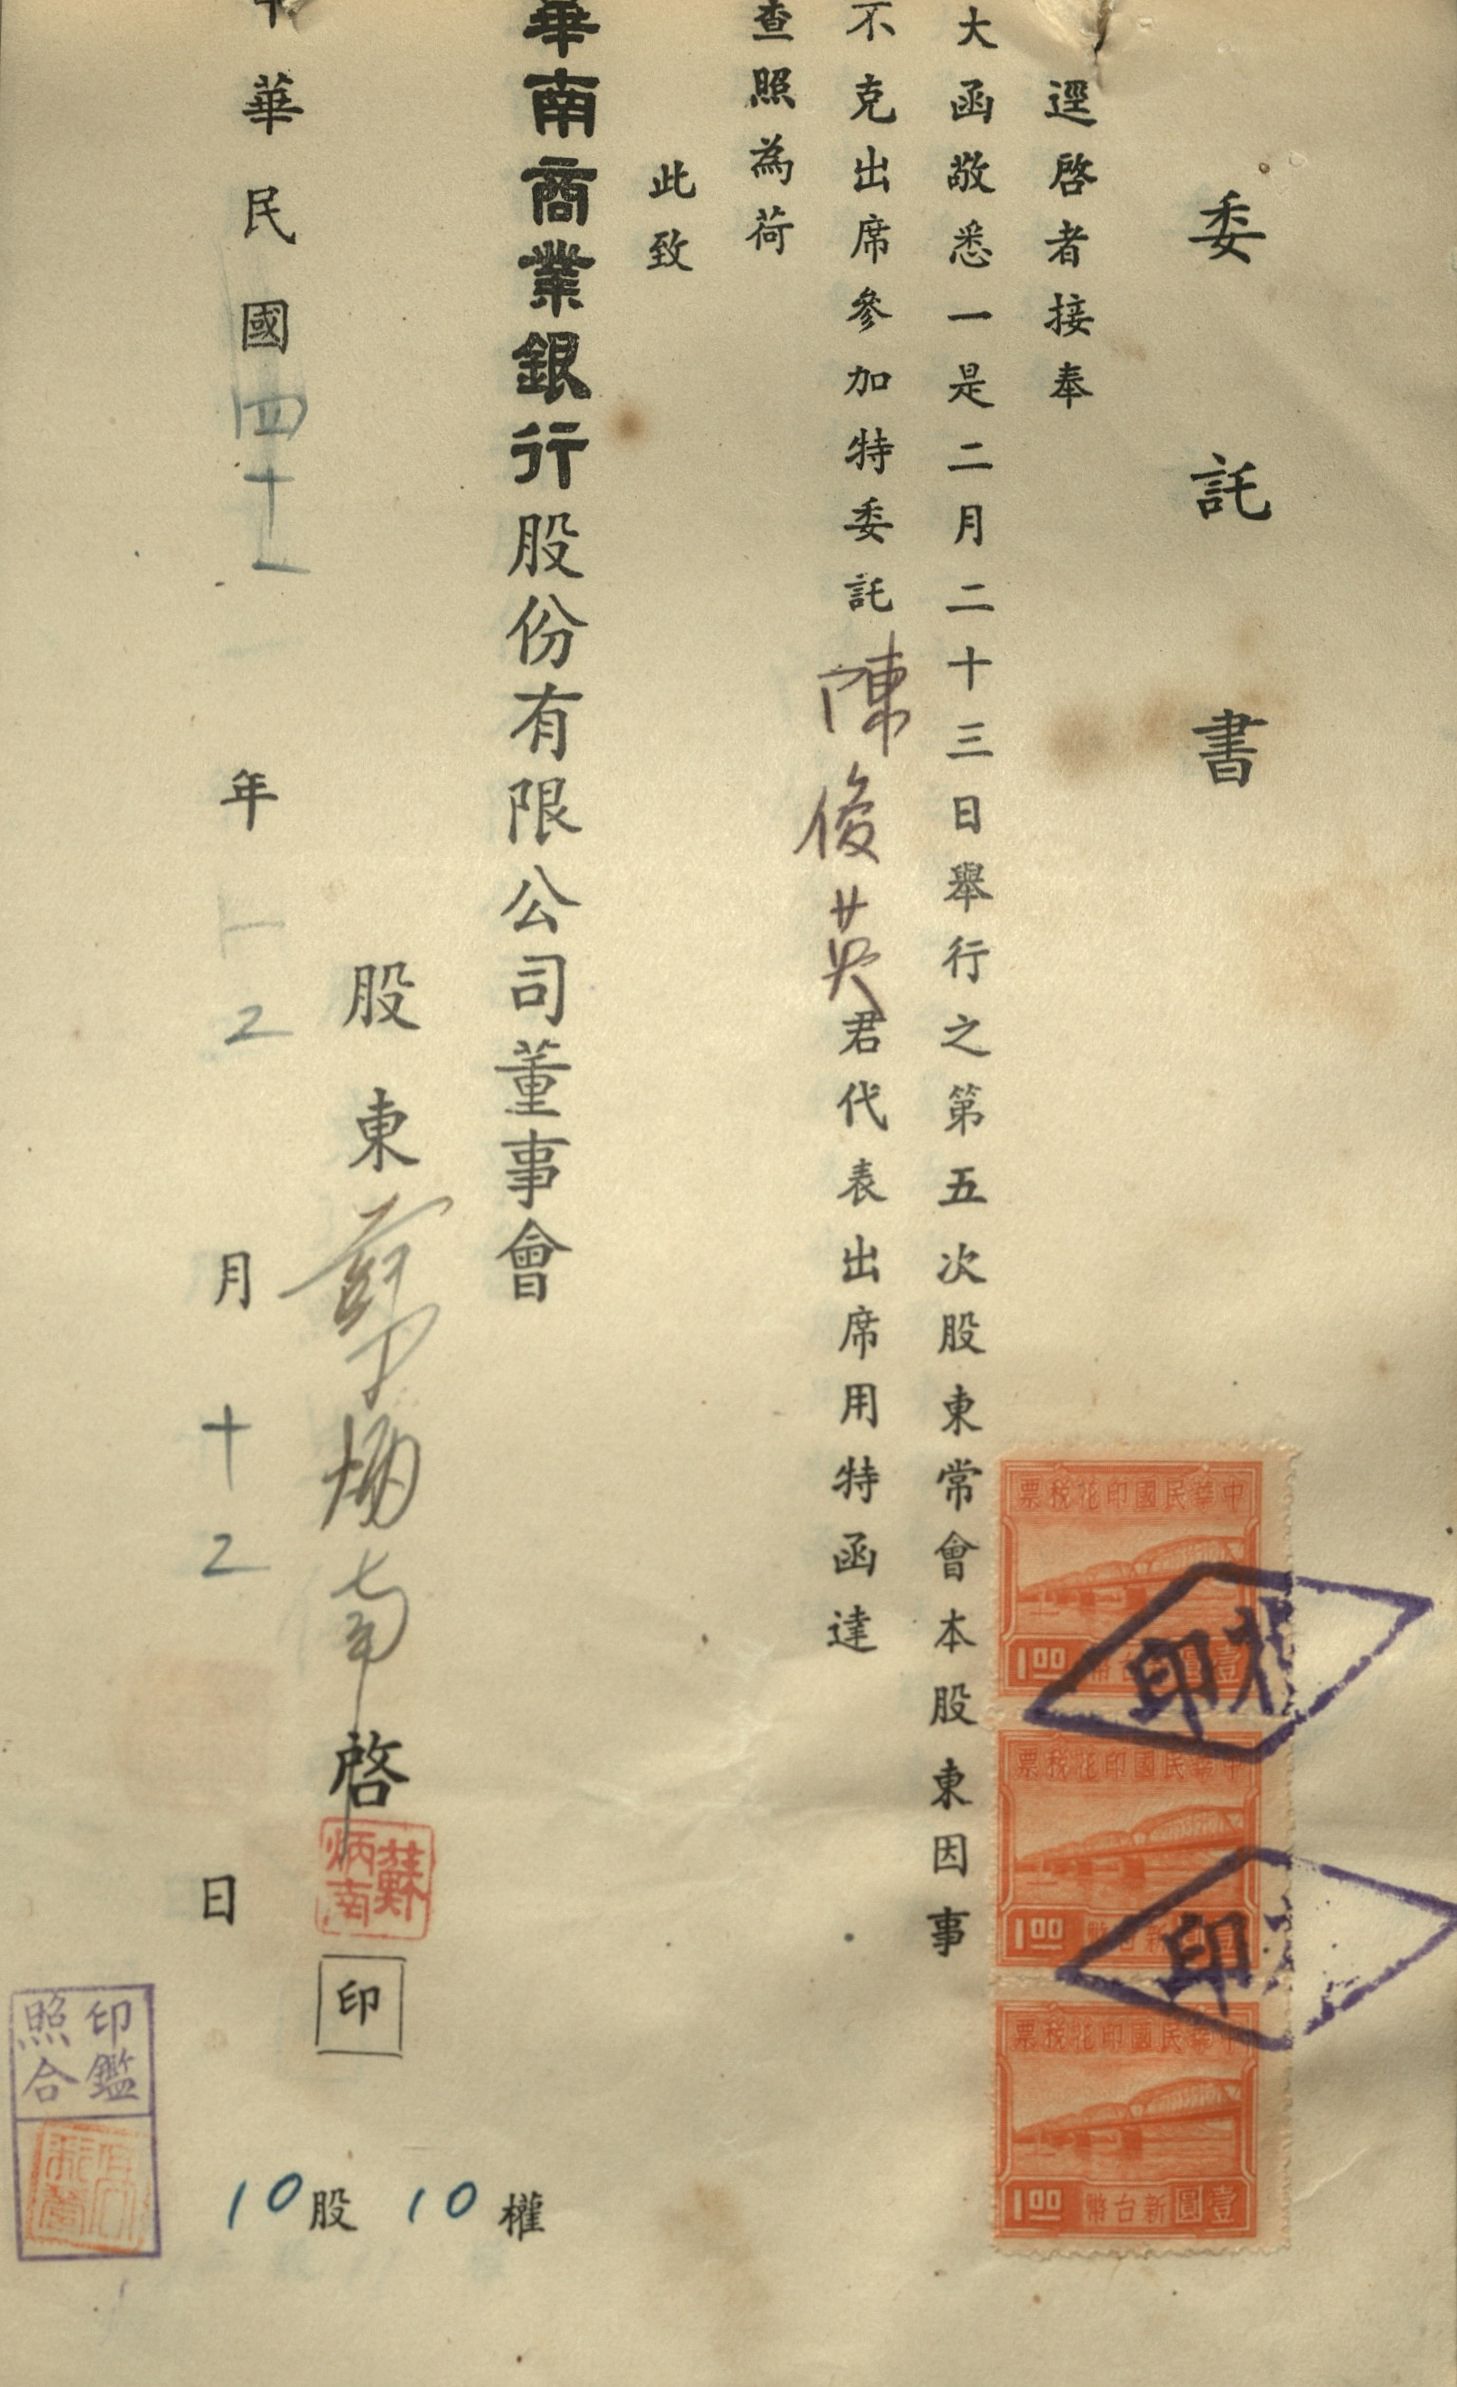 委託書
逕啓者接奉
大函敬悉一是二月二十三日舉行之第五次股東常會本股東因事
不克出席參加特委託陳俊英君代表出席用特函達
查照為荷
此致
華南商業銀行股份有限公司董事會
股東蘇炳南啓
蘇炳南
印
中華民國四十一年2月十2日
10股 10權
印鑑
照合
中華民國印花稅票
1.00 壹圓新台幣
中華民國印花稅票
1.00 壹圓新台幣
中華民國印花稅票
1.00 壹圓新台幣
印
印